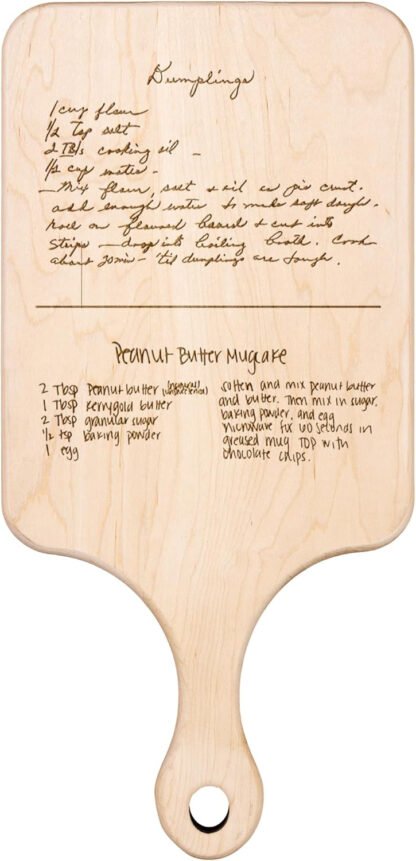 Dumplings
1 cup flour
1/2 Tsp salt
2 TBls cooking oil –
1/2 cup water –
– Mix flour, salt & oil as pie crust.
add enough water to make soft dough.
Roll on floured board & cut into
strips – drop into boiling broth. Cook
about 20 min – 'til dumplings are tough.
Peanut Butter Mugcake
2 Tbsp Peanut butter (natural/
1 Tbsp Kerrygold butter
2 Tbsp granular sugar
1/2 tsp baking powder
1 egg
soften and mix peanut butter
and butter. Then mix in sugar,
baking powder, and egg
microwave for 60 seconds in
greased mug TOP with
chocolate chips.